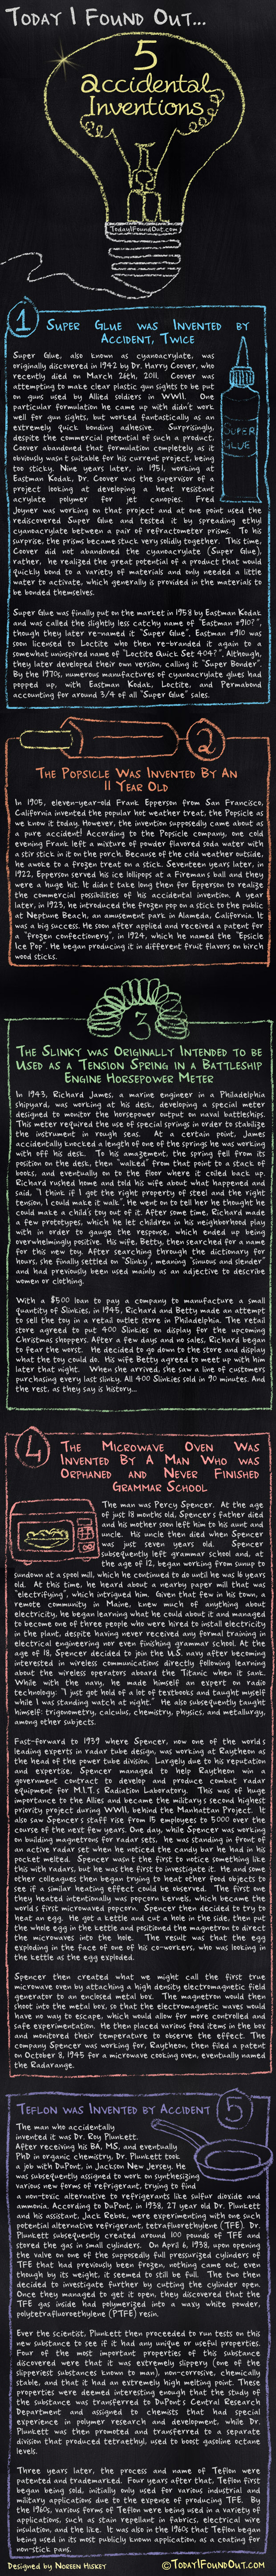 Today I Found Out...
5
accidental
Inventions
TodayIFoundOut.com
1
Super Glue was Invented by
Accident, Twice
Super Glue, also known as cyanoacrylate, was
originally discovered in 1942 by Dr. Harry Coover, who
recently died on March 26th, 2011. Coover was
attempting to make clear plastic gun sights to be put
on guns used by Allied soldiers in WWII. One
particular formulation he came up with didn't work
well for gun sights, but worked fantastically as an
extremely quick bonding adhesive. Surprisingly,
despite the commercial potential of such a product,
Coover abandoned that formulation completely as it
obviously wasn't suitable for his current project, being
too sticky. Nine years later, in 1951, working at
Eastman Kodak, Dr. Coover was the supervisor of a
project looking at developing a heat resistant
acrylate polymer for jet canopies. Fred
Joyner was working on that project and at one point used the
rediscovered Super Glue and tested it by spreading ethyl
cyanoacrylate between a pair of refractometer prisms. To his
surprise, the prisms became stuck very solidly together. This time,
Coover did not abandoned the cyanoacrylate (Super Glue),
rather, he realized the great potential of a product that would
quickly bond to a variety of materials and only needed a little
water to activate, which generally is provided in the materials to
be bonded themselves.
SUPER
GLUE
Super Glue was finally put on the market in 1958 by Eastman Kodak
and was called the slightly less catchy name of "Eastman #910?",
though they later re-named it "Super Glue". Eastman #910 was
soon licensed to Loctite who then re-branded it again to a
somewhat uninspired name of "Loctite Quick Set 404?". Although,
they later developed their own version, calling it "Super Bonder".
By the 1970s, numerous manufactures of cyanoacrylate glues had
popped up, with Eastman Kodak, Loctite, and Permabond
accounting for around 3/4 of all "Super Glue" sales.
2
The Popsicle Was Invented By An
11 Year Old
In 1905, eleven-year-old Frank Epperson from San Francisco,
California invented the popular hot weather treat, the Popsicle as
we know it today. However, the invention supposedly came about as
a pure accident! According to the Popsicle company, one cold
evening Frank left a mixture of powder flavored soda water with
a stir stick in it on the porch. Because of the cold weather outside,
he awoke to a frozen treat on a stick. Seventeen years later, in
1922, Epperson served his ice lollipops at a Fireman's ball and they
were a huge hit. It didn't take long then for Epperson to realize
the commercial possibilities of his accidental invention. A year
later, in 1923, he introduced the frozen pop on a stick to the public
at Neptune Beach, an amusement park in Alameda, California. It
was a big success. He soon after applied and received a patent for
a "frozen confectionery", in 1924, which he named the "Epsicle
Ice Pop". He began producing it in different fruit flavors on birch
wood sticks.
3
The Slinky was Originally Intended to be
Used as a Tension Spring in a Battleship
Engine Horsepower Meter
In 1943, Richard James, a marine engineer in a Philadelphia
shipyard, was working at his desk, developing a special meter
designed to monitor the horsepower output on naval battleships.
This meter required the use of special springs in order to stabilize
the instrument in rough seas. At a certain point, James
accidentally knocked a length of one of the springs he was working
with off his desk. To his amazement, the spring fell from its
position on the desk, then "walked" from that point to a stack of
books, and eventually on to the floor where it coiled back up.
Richard rushed home and told his wife about what happened and
said, "I think if I got the right property of steel and the right
tension, I could make it walk", He went on to tell her he thought he
could make a child's toy out of it. After some time, Richard made
a few prototypes, which he let children in his neighborhood play
with in order to gauge the response, which ended up being
overwhelmingly positive. His wife, Betty, then searched for a name
for this new toy. After searching through the dictionary for
hours, she finally settled on "Slinky", meaning "sinuous and slender"
and had previously been used mainly as an adjective to describe
women or clothing.
With a $500 loan to pay a company to manufacture a small
quantity of Slinkies, in 1945, Richard and Betty made an attempt
to sell the toy in a retail outlet store in Philadelphia. The retail
store agreed to put 400 Slinkies on display for the upcoming
Christmas shoppers. After a few days and no sales, Richard began
to fear the worst. He decided to go down to the store and display
what the toy could do. His wife Betty agreed to meet up with him
later that night. When she arrived, she saw a line of customers
purchasing every last slinky. All 400 Slinkies sold in 90 minutes. And
the rest, as they say is history...
4
The Microwave Oven Was
Invented By A Man Who was
Orphaned and Never Finished
Grammar School
The man was Percy Spencer. At the age
of just 18 months old, Spencer's father died
and his mother soon left him to his aunt and
uncle. His uncle then died when Spencer
was just seven years old. Spencer
subsequently left grammar school and, at
the age of 12, began working from sunup to
sundown at a spool mill, which he continued to do until he was 16 years
old. At this time, he heard about a nearby paper mill that was
"electrifying", which intrigued him. Given that few in his town, a
remote community in Maine, knew much of anything about
electricity, he began learning what he could about it and managed
to become one of three people who were hired to install electricity
in the plant, despite having never received any formal training in
electrical engineering nor even finishing grammar school. At the
age of 18, Spencer decided to join the U.S. navy after becoming
interested in wireless communications directly following learning
about the wireless operators aboard the Titanic when it sank.
While with the navy, he made himself an expert on radio
technology: "I just got hold of a lot of textbooks and taught myself
while I was standing watch at night." He also subsequently taught
himself: trigonometry, calculus, chemistry, physics, and metallurgy,
among other subjects.
Fast-forward to 1939 where Spencer, now one of the world's
leading experts in radar tube design, was working at Raytheon as
the head of the power tube division. Largely due to his reputation
and expertise, Spencer managed to help Raytheon win a
government contract to develop and produce combat radar
equipment for M.I.T.'s Radiation Laboratory. This was of huge
importance to the Allies and became the military's second highest
priority project during WWII, behind the Manhattan Project. It
also saw Spencer's staff rise from 15 employees to 5000 over the
course of the next few years. One day, while Spencer was working
on building magnetrons for radar sets, he was standing in front of
an active radar set when he noticed the candy bar he had in his
pocket melted. Spencer wasn't the first to notice something like
this with radars, but he was the first to investigate it. He and some
other colleagues then began trying to heat other food objects to
see if a similar heating effect could be observed. The first one
they heated intentionally was popcorn kernels, which became the
world's first microwaved popcorn. Spencer then decided to try to
heat an egg. He got a kettle and cut a hole in the side, then put
the whole egg in the kettle and positioned the magnetron to direct
the microwaves into the hole. The result was that the egg
exploding in the face of one of his co-workers, who was looking in
the kettle as the egg exploded.
Spencer then created what we might call the first true
microwave oven by attaching a high density electromagnetic field
generator to an enclosed metal box. The magnetron would then
shoot into the metal box, so that the electromagnetic waves would
have no way to escape, which would allow for more controlled and
safe experimentation. He then placed various food items in the box
and monitored their temperature to observe the effect. The
company Spencer was working for, Raytheon, then filed a patent
on October 8, 1945 for a microwave cooking oven, eventually named
the Radarange.
Teflon was Invented by Accident
5
The man who accidentally
invented it was Dr. Roy Plunkett.
After receiving his BA, MS, and eventually
PhD in organic chemistry, Dr. Plunkett took
a job with DuPont, in Jackson New Jersey. He
was subsequently assigned to work on synthesizing
various new forms of refrigerant, trying to find
a non-toxic alternative to refrigerants like sulfur dioxide and
ammonia. According to DuPont, in 1938, 27 year old Dr. Plunkett
and his assistant, Jack Rebok, were experimenting with one such
potential alternative refrigerant, tetrafluorethylene (TFE). Dr.
Plunkett subsequently created around 100 pounds of TFE and
stored the gas in small cylinders. On April 6, 1938, upon opening
the valve on one of the supposedly full pressurized cylinders of
TFE that had previously been frozen, nothing came out, even
though by its weight, it seemed to still be full. The two then
decided to investigate further by cutting the cylinder open.
Once they managed to get it open, they discovered that the
TFE gas inside had polymerized into a waxy white powder,
polytetrafluoroethylene (PTFE) resin.
Ever the scientist, Plunkett then proceeded to run tests on this
new substance to see if it had any unique or useful properties.
Four of the most important properties of this substance
discovered were that it was extremely slippery (one of the
slipperiest substances known to man), non-corrosive, chemically
stable, and that it had an extremely high melting point. These
properties were deemed interesting enough that the study of
the substance was transferred to DuPont's Central Research
Department and assigned to chemists that had special
experience in polymer research and development, while Dr.
Plunkett was then promoted and transferred to a separate
division that produced tetraethyl, used to boost gasoline octane
levels.
Three years later, the process and name of Teflon were
patented and trademarked. Four years after that, Teflon first
began being sold, initially only used for various industrial and
military applications due to the expense of producing TFE. By
the 1960s, various forms of Teflon were being used in a variety of
applications, such as stain repellent in fabrics, electrical wire
insulation, and the like. It was also in the 1960's that Teflon began
being used in its most publicly known application, as a coating for
non-stick pans.
Designed by Noreen Hiskey
©TodayIFoundOut.com